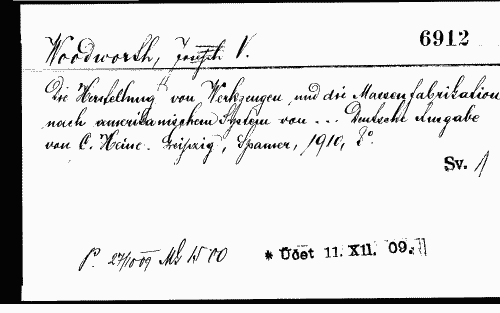 6912
Woodworth, Joseph V.
Die Herstellung von Werkzeugen und die Massenfabrikation
nach amerikanischem System von ... Deutsche Ausgabe
von C. Heine. Leipzig, Spamer, 1910, 8°.
Sv. 1
P. 27/10 09 Mk 15 00
* Účet 11. XII. 09.